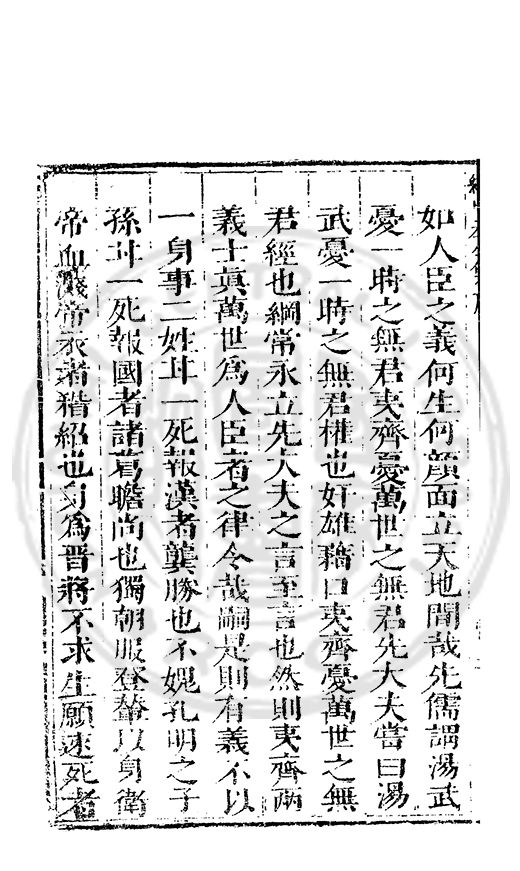 如人臣之義何生何顔面立天地間哉先儒謂湯武
憂一時之無君夷齊憂萬世之無君先大夫嘗曰湯
武憂一時之無君權也奸雄藉口夷齊憂萬世之無
君經也綱常永立先大夫之言至言也然則夷齊兩
義士眞萬世爲人臣者之律令哉嗣是則有義不以
一身事二姓廾一死報漢者龔勝也不媿孔明之子
孫廾一死報國者諸葛瞻尚也獨朝服登輦以身衛
帝血濺帝衣者嵇紹也身爲晋將不求生願速死者